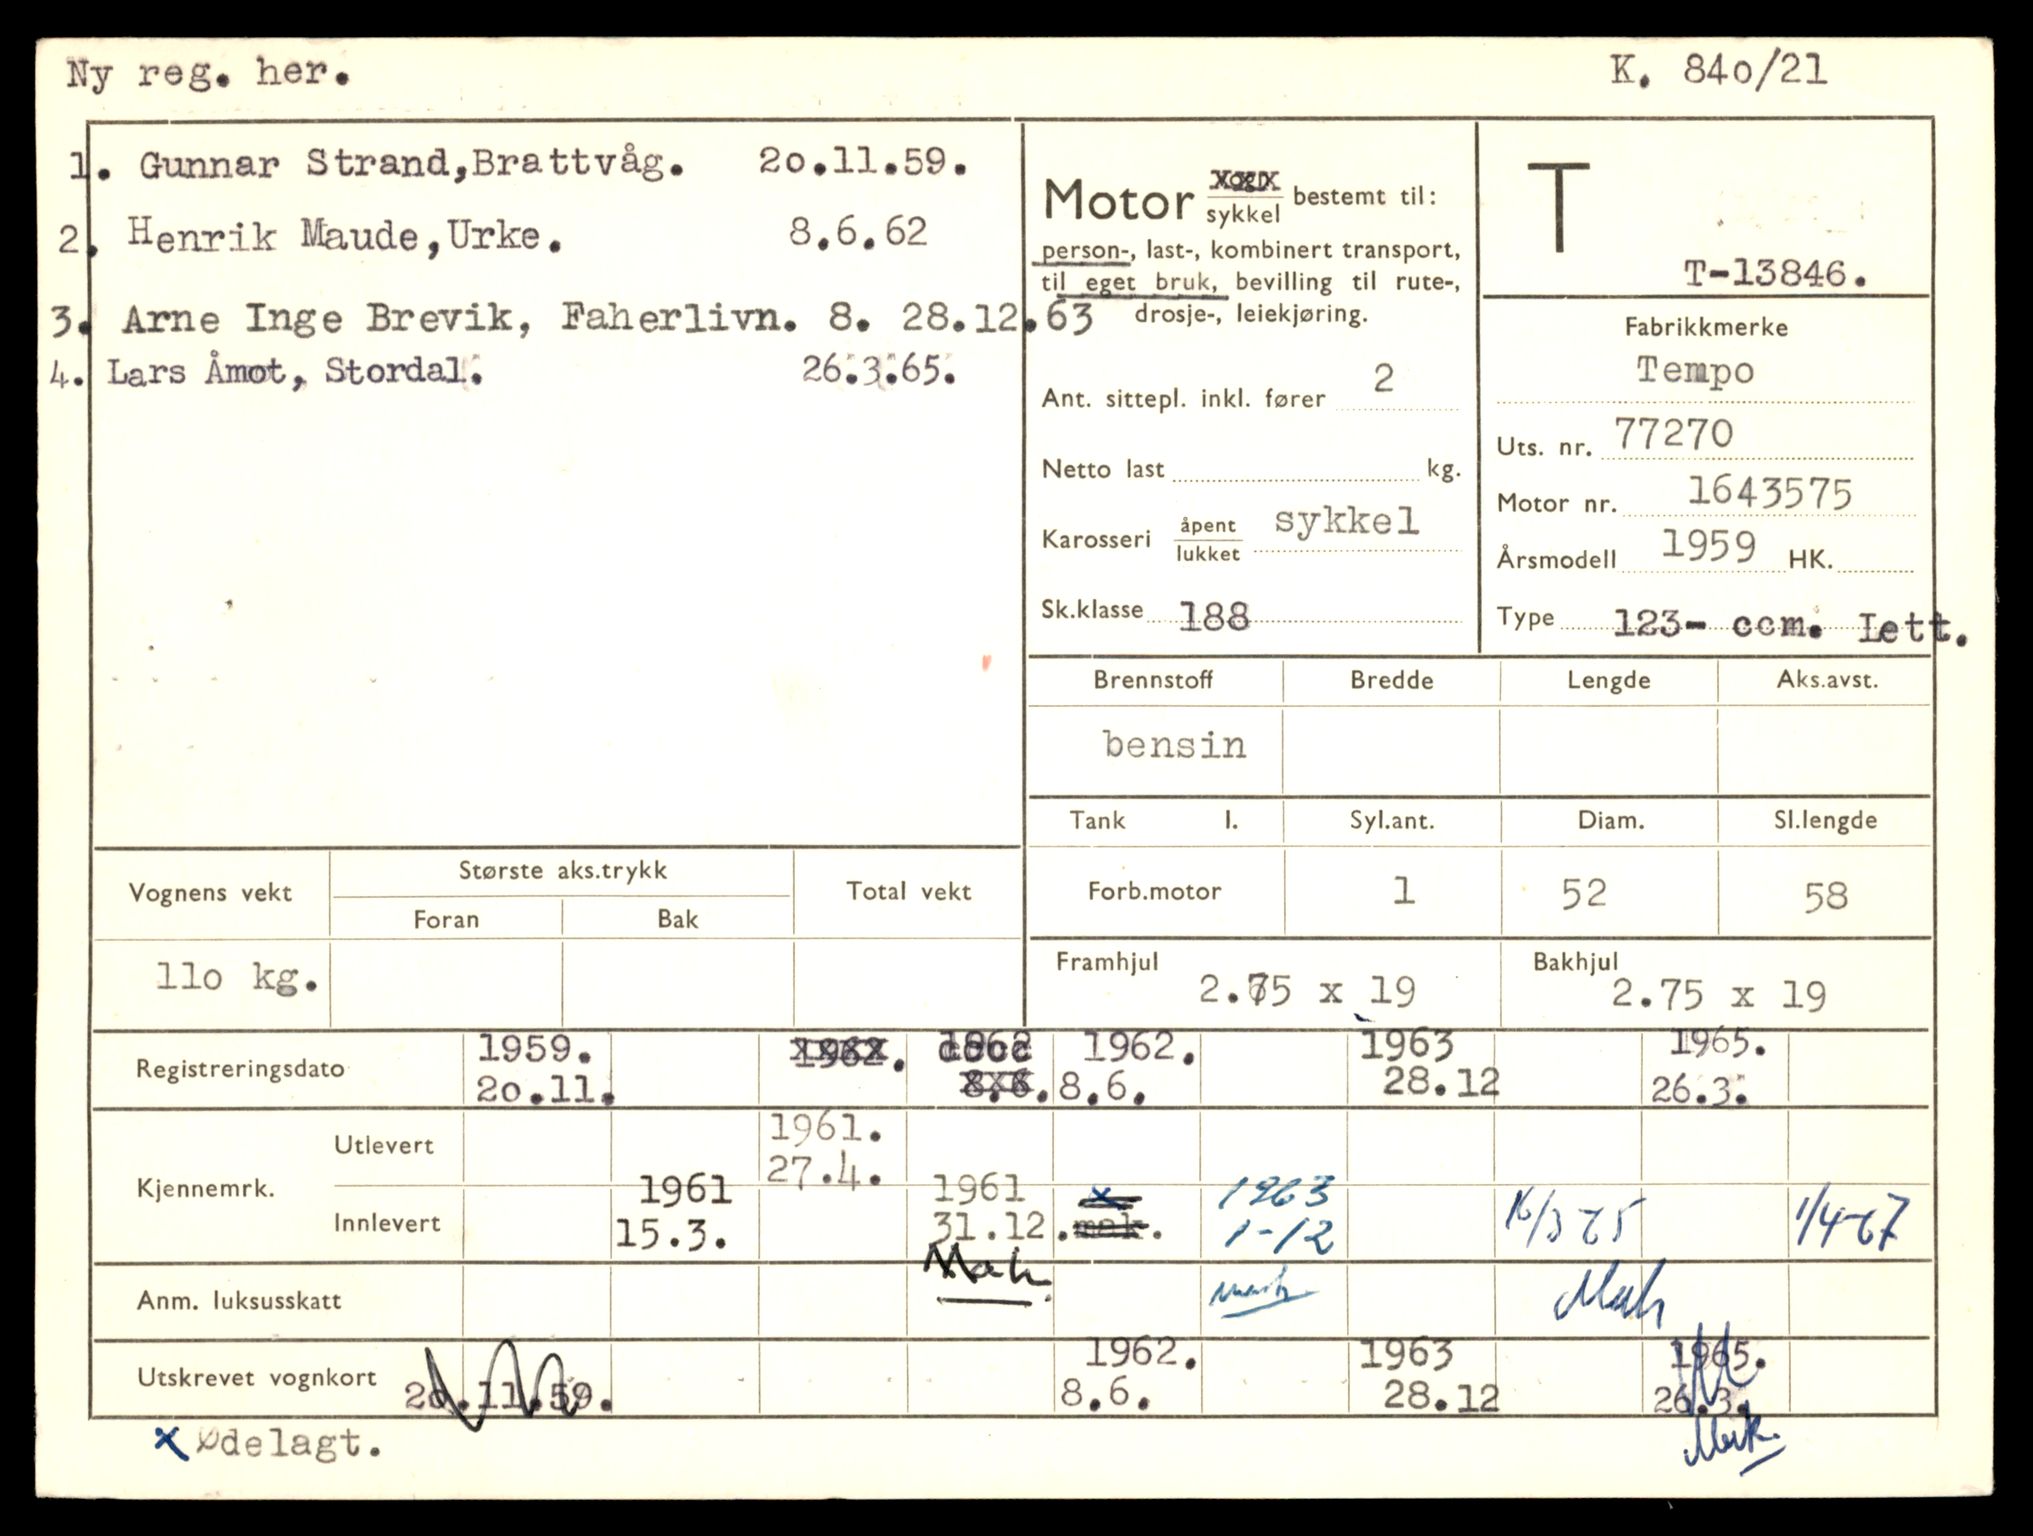 Ny reg. her.
K. 84o/21
1. Gunnar Strand,Brattvåg. 2o.11.59.
2. Henrik Maude,Urke. 8.6.62
3. Arne Inge Brevik, Faherlivn. 8. 28.12.63
4. Lars Åmot, Stordal. 26.3.65.
Motor vogn/sykkel bestemt til:
person-, last-, kombinert transport,
til eget bruk, bevilling til rute-,
drosje-, leiekjøring.
Ant. sittepl. inkl. fører 2
Netto last kg.
Karosseri åpent/lukket sykkel
Sk.klasse 188
T
T-13846.
Fabrikkmerke
Tempo
Uts. nr. 77270
Motor nr. 1643575
Årsmodell 1959 HK.
Type 123- ccm. Lett.
Brennstoff Bredde Lengde Aks.avst.
bensin
Tank l. Syl.ant. Diam. Sl.lengde
Forb.motor 1 52 58
Framhjul 2.75 x 19
Bakhjul 2.75 x 19
Vognens vekt Største aks.trykk Total vekt
Foran Bak
11o kg.
Registreringsdato
1959. 1962. 1962 1962. 1963 1965.
2o.11. 8.6. 8.6. 28.12 26.3.
Kjennemrk.
Utlevert
1961.
27.4.
Innlevert
1961 1961 x 1963
15.3. 31.12. mak. 1-12 16/3 65 1/4-67
Mak
Mak
Mak
Anm. luksusskatt
Utskrevet vognkort
1962. 1963 1965.
2o.11.59. 8.6. 28.12 26.3.
Mak.
x Ødelagt.